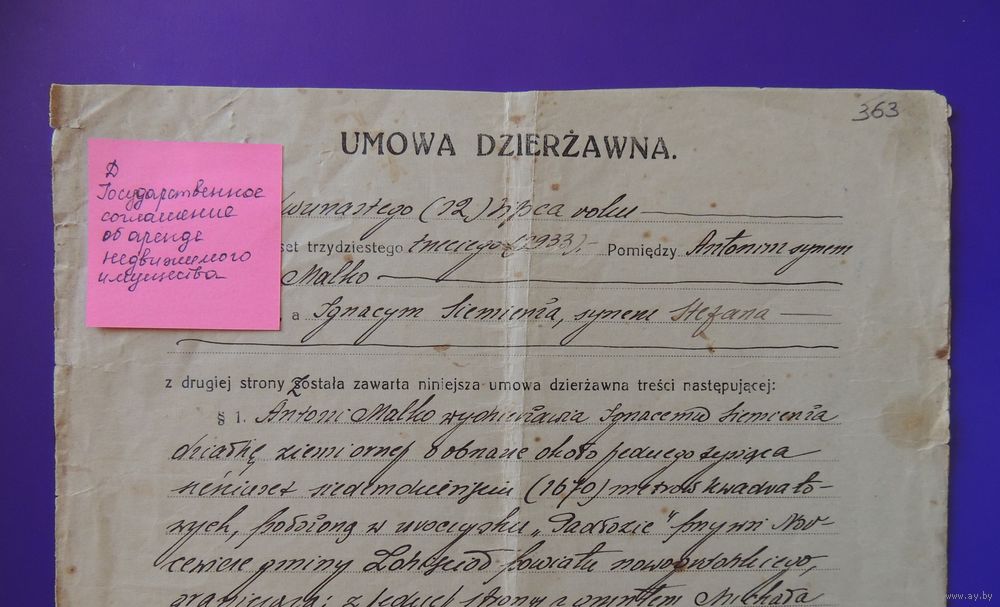 363
UMOWA DZIERŻAWNA.
Д
Государственное
соглашение
об аренде
недвижимого
имущества
(12) lipca roku
set trzydziestego trzeciego (1933) Pomiędzy Antonim synem
Malko
a Ignacym Siemienia, synem Stefana
z drugiej strony Została zawarta niniejsza umowa dzierżawna treści następującej:
§ 1. Antoni Malko wydzierżawia Ignacemu Siemienia
działkę ziemi ornej o obszarze około jednego tysiąca
(1670) metrów kwadrato-
wych, położoną w uroczysku przy wsi
gminy powiatu
graniczącą: z jednej strony z gruntem Michała
www.ay.by